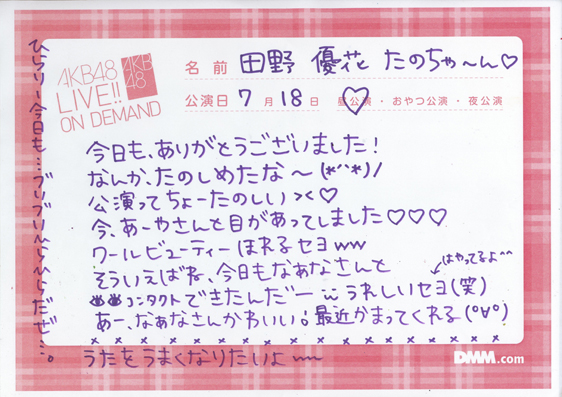 AKB48
LIVE!!
ON DEMAND
AKB
48
名前 田野 優花 たのちゃ〜ん♡
公演日 7月18日 昼公演・おやつ公演・夜公演
今日も、ありがとうございました!
なんか、たのしめたな〜(*´˘`*)ノ
公演ってちょーたのしい><♡
今、あーやさんと目があってしました♡♡♡
ワールビューティーほれるセヨww
そういえばね、今日もなぁなさんと
コンタクトできたんだー うれしいセヨ(笑)
はやってるよ^^
あー、なぁなさんかわいい。最近かまってくれる(°∀°)
うたをうまくなりたいよ〜〜
DMM.com
ひらりー今日も…ブリブリへらへらだぜ…。